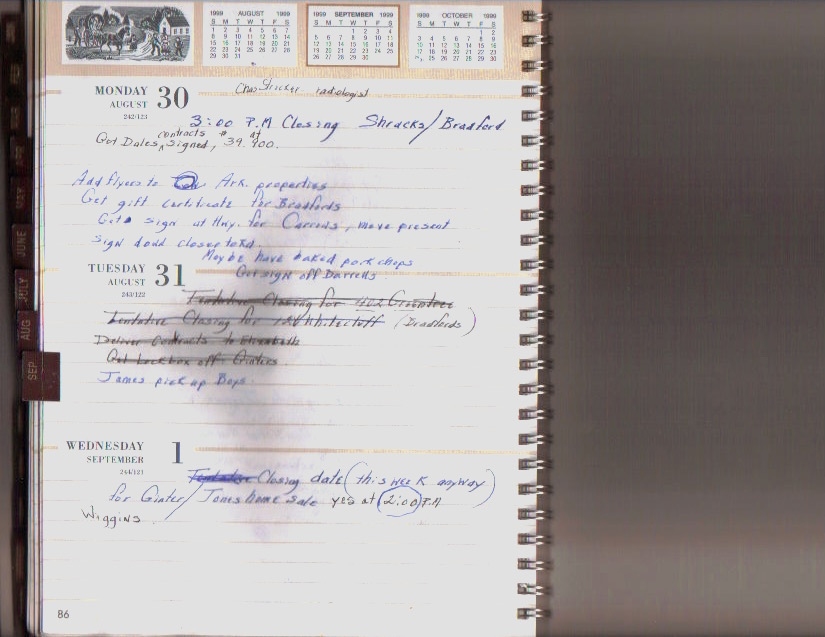 1999 AUGUST 1999
S M T W T F S
1 2 3 4 5 6 7
8 9 10 11 12 13 14
15 16 17 18 19 20 21
22 23 24 25 26 27 28
29 30 31
1999 SEPTEMBER 1999
S M T W T F S
1 2 3 4
5 6 7 8 9 10 11
12 13 14 15 16 17 18
19 20 21 22 23 24 25
26 27 28 29 30
1999 OCTOBER 1999
S M T W T F S
1 2
3 4 5 6 7 8 9
10 11 12 13 14 15 16
17 18 19 20 21 22 23
24 25 26 27 28 29 30
MONDAY 30
AUGUST
242/123
radiologist
3:00 P.M Closing Shrucks/Bradford
Got Dales contracts signed, # 39.900. at
Add flyers to Ark. properties
Get gift certificate for Bradfords
Get sign at Hwy. for Carrens, move present
sign dead closer to rd.
Maybe have baked pork chops
Got sign off Darrells
TUESDAY 31
AUGUST
243/122
Tentative Closing for 402 Greentree
Tentative Closing for Whitecluff (Bradfords)
Deliver Contracts to Elizabeth
Get Lockbox off Ginters
James pick up Boys
WEDNESDAY 1
SEPTEMBER
244/121
Tentative Closing date (this week anyway)
for Ginter/Jones home sale yes at 2:00 P.M
Wiggins
86
APR
MAY
JUNE
JULY
AUG
SEP